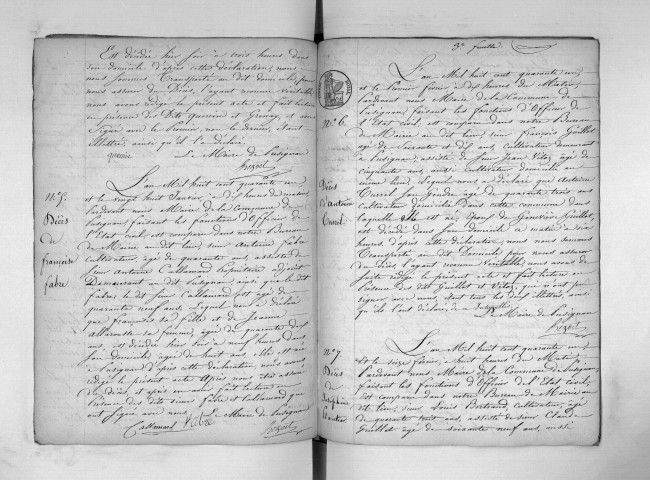 Est décédée hier soir à trois heures dans
son domicile d'après cette déclaration, nous
nous sommes transporté au dit domicile pour
nous assurer du Décès, l'ayant reconnu véritable
nous avons rédigé le présent acte et fait lecture
en présence des dits
signé avec le premier, non le dernier, étant
illettré ainsi qu'il l'a déclaré
Le Maire de Pusignan
N.° 5.
Décès
de
françoise
fabre
L'an Mil huit cent quarante un
et le vingt huit Janvier à dix heures du matin
pardevant nous Maire de la Commune de
Pusignan, faisant les fonctions d'Officier de
l'Etat civil, est comparu dans notre Bureau
de Mairie au dit lieu, sieur Antoine fabre
cultivateur, âgé de quarante ans, assisté de
sieur Antoine Callamard propriétaire adjoint
Demeurant au dit Pusignan ainsi que le dit
fabre, le dit sieur Callamard est âgé de
quarante neuf ans, Lequel nous a déclaré
que françoise sa fille et de Jeanne
sa femme, âgée de quarante dix
ans, est décédée hier soir à neuf heures dans
son domicile, âgée de huit ans elle est née
à Pusignan d'après cette déclaration, nous avons
rédigé le présent acte après nous être assuré
du Décès, et après en avoir fait lecture en
Présence des dits sieurs fabre et Callamard qui
ont signé avec nous. Le Maire de Pusignan
Callamard fabre
3.e feuille
N.° 6.
Décès
d'antoine
L'an Mil huit cent quarante un
et le premier février à dix heures du Matin
Pardevant nous Maire de la Commune de
Pusignan, faisant les fonctions d'Officier de
l'Etat Civil, est comparu dans notre Bureau
de Mairie au dit lieu, sieur françois Guillot
âgé de soixante et dix ans, cultivateur demeurant
à Pusignan, assisté de sieur Jean Vitoz âgé de
cinquante ans, aussi cultivateur domicilié au
même lieu, Lequel nous a déclaré que Antoine
son gendre, âgé de quarante trois ans
cultivateur domicilié dans cette commune dans
laquelle il est né, époux de Geneviève Guillot,
est décédé dans son domicile ce matin à six
heures d'après cette déclaration, nous nous sommes
transporté au dit domicile pour nous assurer
du Décès l'ayant reconnu véritable, nous avons de
suite rédigé le présent acte et fait lecture en
Présence des dits Guillot et Vitoz qui n'ont pu
signer avec nous, étant tous les deux illettrés, ainsi
qu'ils l'ont déclaré, de ce requis
Le Maire de Pusignan
N.° 7.
Décès
de
Joséphine
L'an Mil huit cent quarante un
et le seize février à huit heures du Matin
Pardevant nous Maire de la Commune de Pusignan
faisant les fonctions d'Officier de l'Etat civil,
est comparu dans notre Bureau de Mairie au
dit lieu, sieur Louis Bertrand cultivateur, âgé
de quarante trois ans, assisté de sieur Claude
Guillot âgé de soixante neuf ans, aussi